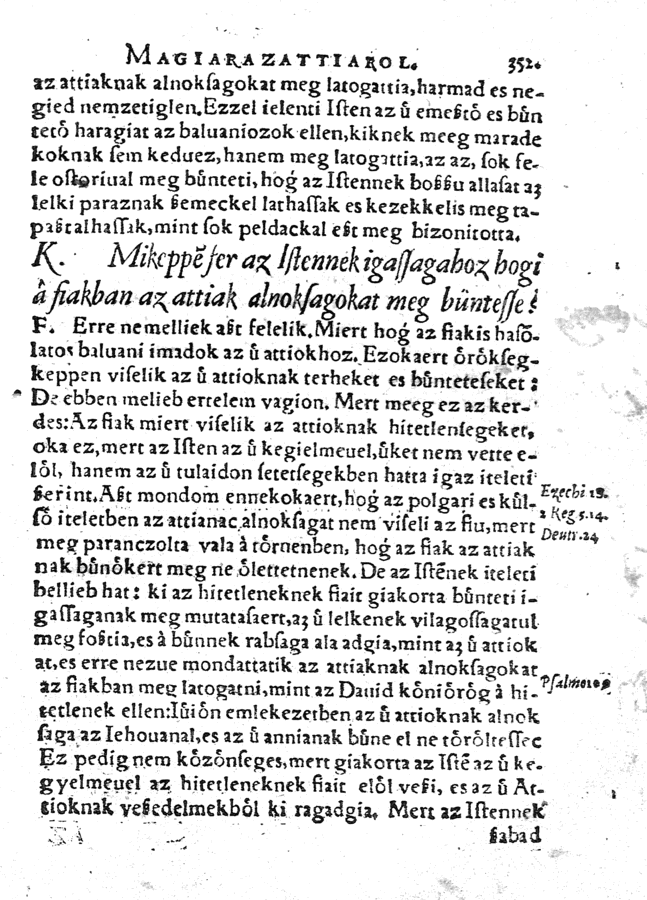 MAGIARAZATTIAROL. 352.
az attiaknak alnokſagokat meg latogattia, harmad es ne-
gied nemzetiglen. Ezzel ielenti Iſten az ů emeßtő es bůn
tető haragiat az baluaniozok ellen, kiknek meeg marade
koknak ſem keduez, hanem meg latogattia, az az, ſok fe-
le oſtoriual meg bůnteti, hoǵ az Iſtennek boßßu allaſat az
lelki paraznak ßemeckel lathaſſak es kezekkelis meg ta-
paßtalhaſſak, mint ſok peldackal eßt meg bizonitotta.
K. Mikeppē fer az Iſtennek igaſſagahoz hogi
à fiakban az attiak alnokſagokat meg büntesſe?
F. Erre nemelliek aßt felelik. Miert hoǵ az fiakis haſō-
latos baluani imadok az ů attiokhoz. Ezokaert ǒrǒkſeg-
keppen viſelik az ů attioknak terheket es bůnteteſeket:
De ebben melieb ertelem vagion. Mert meeg ez az ker-
des: Az fiak miert viſelik az attioknak hitetlenſegeket,
oka ez, mert az Iſten az ů kegielmeuel, ůket nem vette e-
lǒl, hanem az ů tulaidon ſetetſegekben hatta igaz iteleti
ßerint. Aßt mondom ennekokaert, hoǵ az polgari es kůl-
ſǒ iteletben az attianac alnokſagat nem viſeli az fiu, mert
meg paranczolta vala à tǒrnenben, hoǵ az fiak az attiak
nak bůnǒkert meg ne ǒlettetnenek. De az Iſtēnek iteleti
bellieb hat: ki az hitetleneknek fiait giakorta bůnteti i-
gaſſaganak meg mutataſaert, az ů lelkenek vilagoſſagatul
meg foßtia, es à bůnnek rabſaga ala adgia, mint az ů attiok
at, es erre nezue mondattatik az attiaknak alnokſagokat
az fiakban meg latogatni, mint az Dauid kǒniǒrǒg à hi-
tetlenek ellen: Iůiǒn emlekezetben az ů attioknak alnok
ſaga az Iehouanal, es az ů annianak bůne el ne tǒrǒlteſſec
Ez pedig nem kǒzǒnſeges, mert giakorta az Iſtē az ů ke-
gyelmeuel az hitetleneknek fiait elǒl veßi, es az ů At-
tioknak veßedelmekbǒl ki ragadgia. Mert az Iſtennek
ßabad
Ezechi 18.
2 Reg 5.14.
Deutr. 24
Pſalm 109